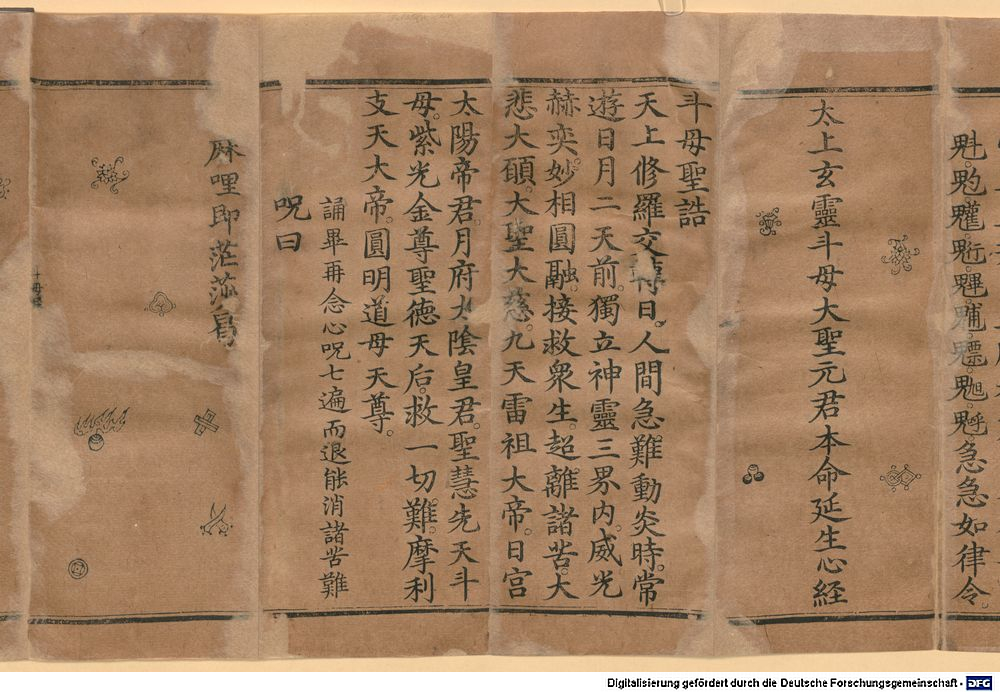 魁。急急如律令。
太上玄靈斗母大聖元君本命延生心経
斗母聖誥
天上修羅交轉日。人間急難動炎時。常
遊日月二天前。獨立神靈三界內。威光
赫奕。妙相圓融。接救衆生。超離諸苦。大
悲大願。大聖大慈。九天雷祖大帝。日宫
太陽帝君。月府太陰皇君。聖慧先天斗
母。紫光金尊聖德天后。救一切難。摩利
支天大帝。圓明道母天尊。
誦畢再念心呪七遍而退能消諸苦難
呪曰
哩即茫
Digitalisierung gefördert durch die Deutsche Forschungsgemeinschaft - DFG